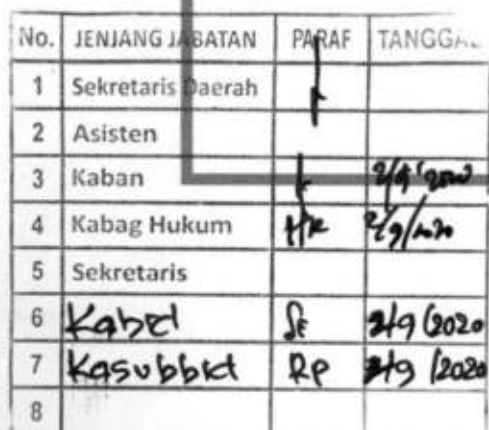 No. JENJANG JABATAN PARAF TANGGAL
1 Sekretaris Daerah
2 Asisten
3 Kaban 2/9 2020
4 Kabag Hukum HK 2/9/2020
5 Sekretaris
6 Kabid SE 2/9 2020
7 Kasubbid RP 2/9 2020
8